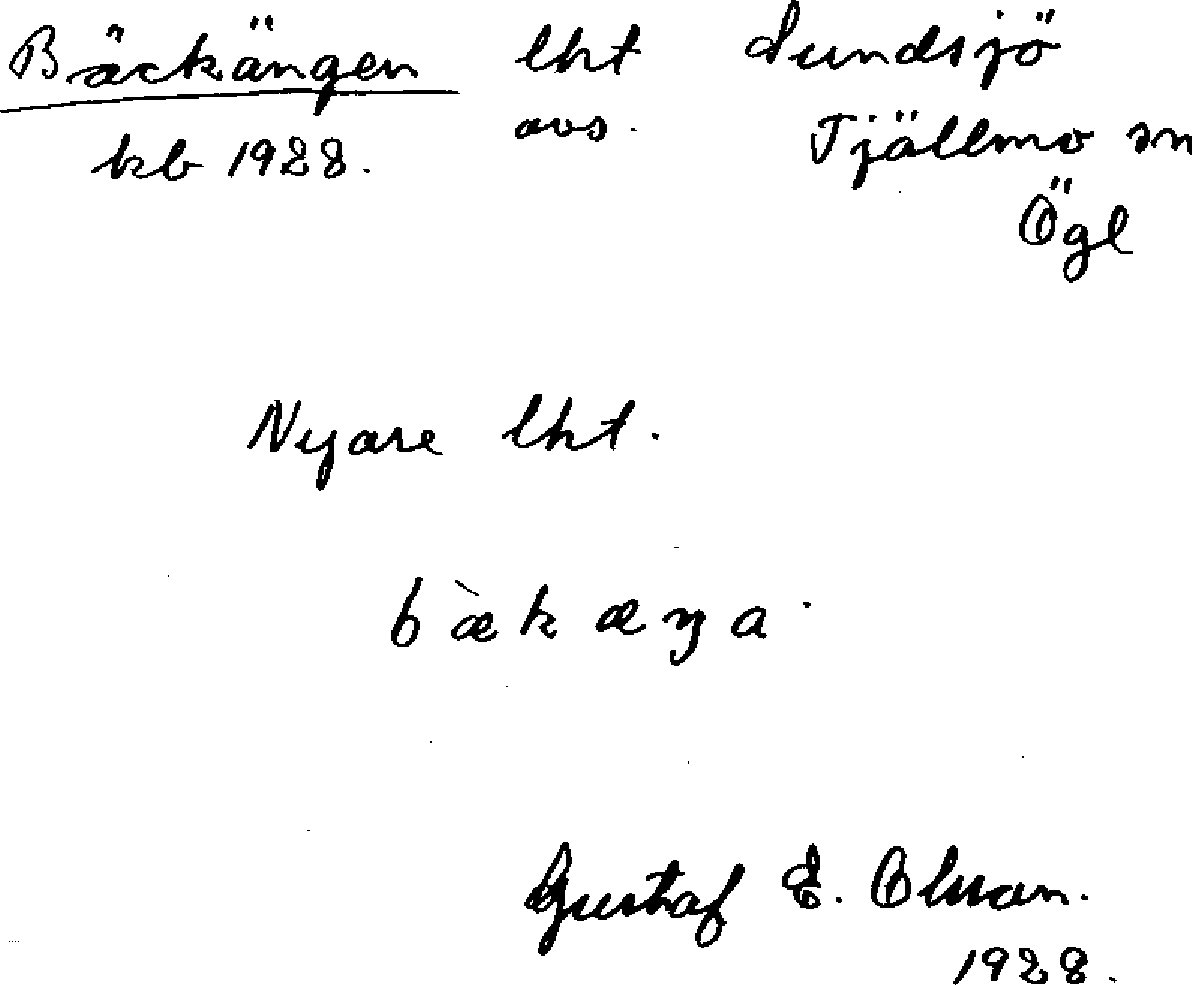 Bäckängen lht Sundsjö
kb 1928. avs. Tjällmo sn
Ögl
Nyare lht.
bæ̀kæŋa
Gustaf E. Olsson.
1928.